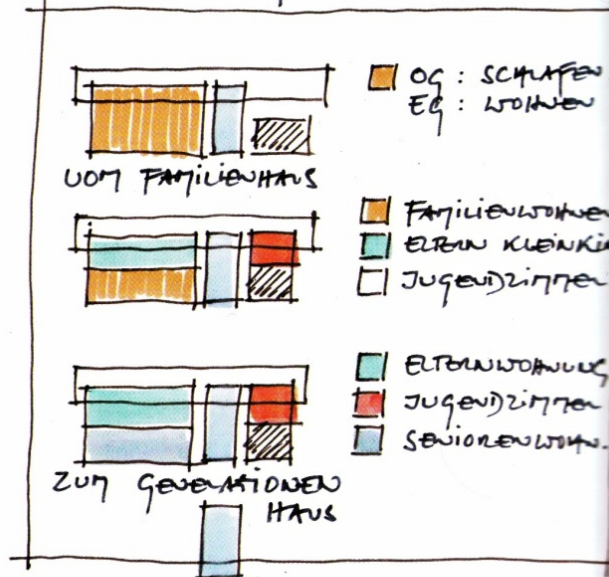 OG : SCHLAFEN
EG : WOHNEN
VOM FAMILIENHAUS
FAMILIENWOHNEN
ELTERN KLEINKI
JUGENDZIMMER
ELTERNWOHNUNG
JUGENDZIMMER
SENIORENWOHN.
ZUM GENERATIONEN
HAUS